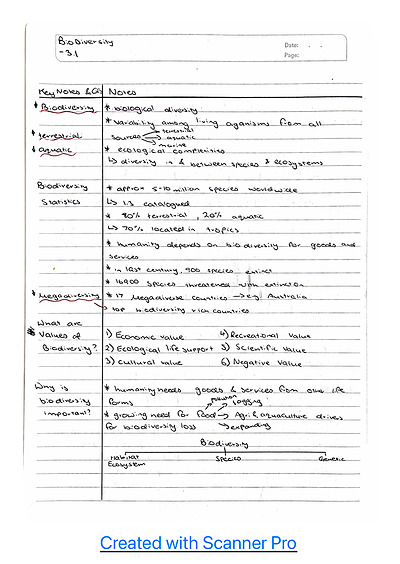 BioDiversity
- 3.1
Date: . .
Page:
Key Notes & Qs Notes
* Biodiversity * biological diversity
* variability among living oganisms from all
* terrestrial sources → terrestrial
→ aquatic
→ marine
* aquatic * ecological complexities
↳ diversity in & between species & ecosystems
Biodiversity * approx 5-10 million species worldwide
Statistics ↳ 1.3 catalogued
* 80% terrestrial, 20% aquatic
↳ 70% located in tropics
* humanity depends on biodiversity for goods and
services
* in last century, 900 species extinct
* 16900 species threatened with extinction
* Megadiversity * 17 Megadiverse countries → eg Australia
→ top biodiversity rich countries
What are
* Values of 1) Economic value 4) Recreational value
Biodiversity? 2) Ecological life support 5) Scientific value
3) Cultural value 6) Negative value
Why is * humanity needs goods & services from one life
biodiversity forms
important? * growing need for food → Agri & aquaculture drives
→ pollution
→ logging
for biodiversity loss → expanding
Biodiversity
Habitat Species Genetic
Ecosystem
Created with Scanner Pro